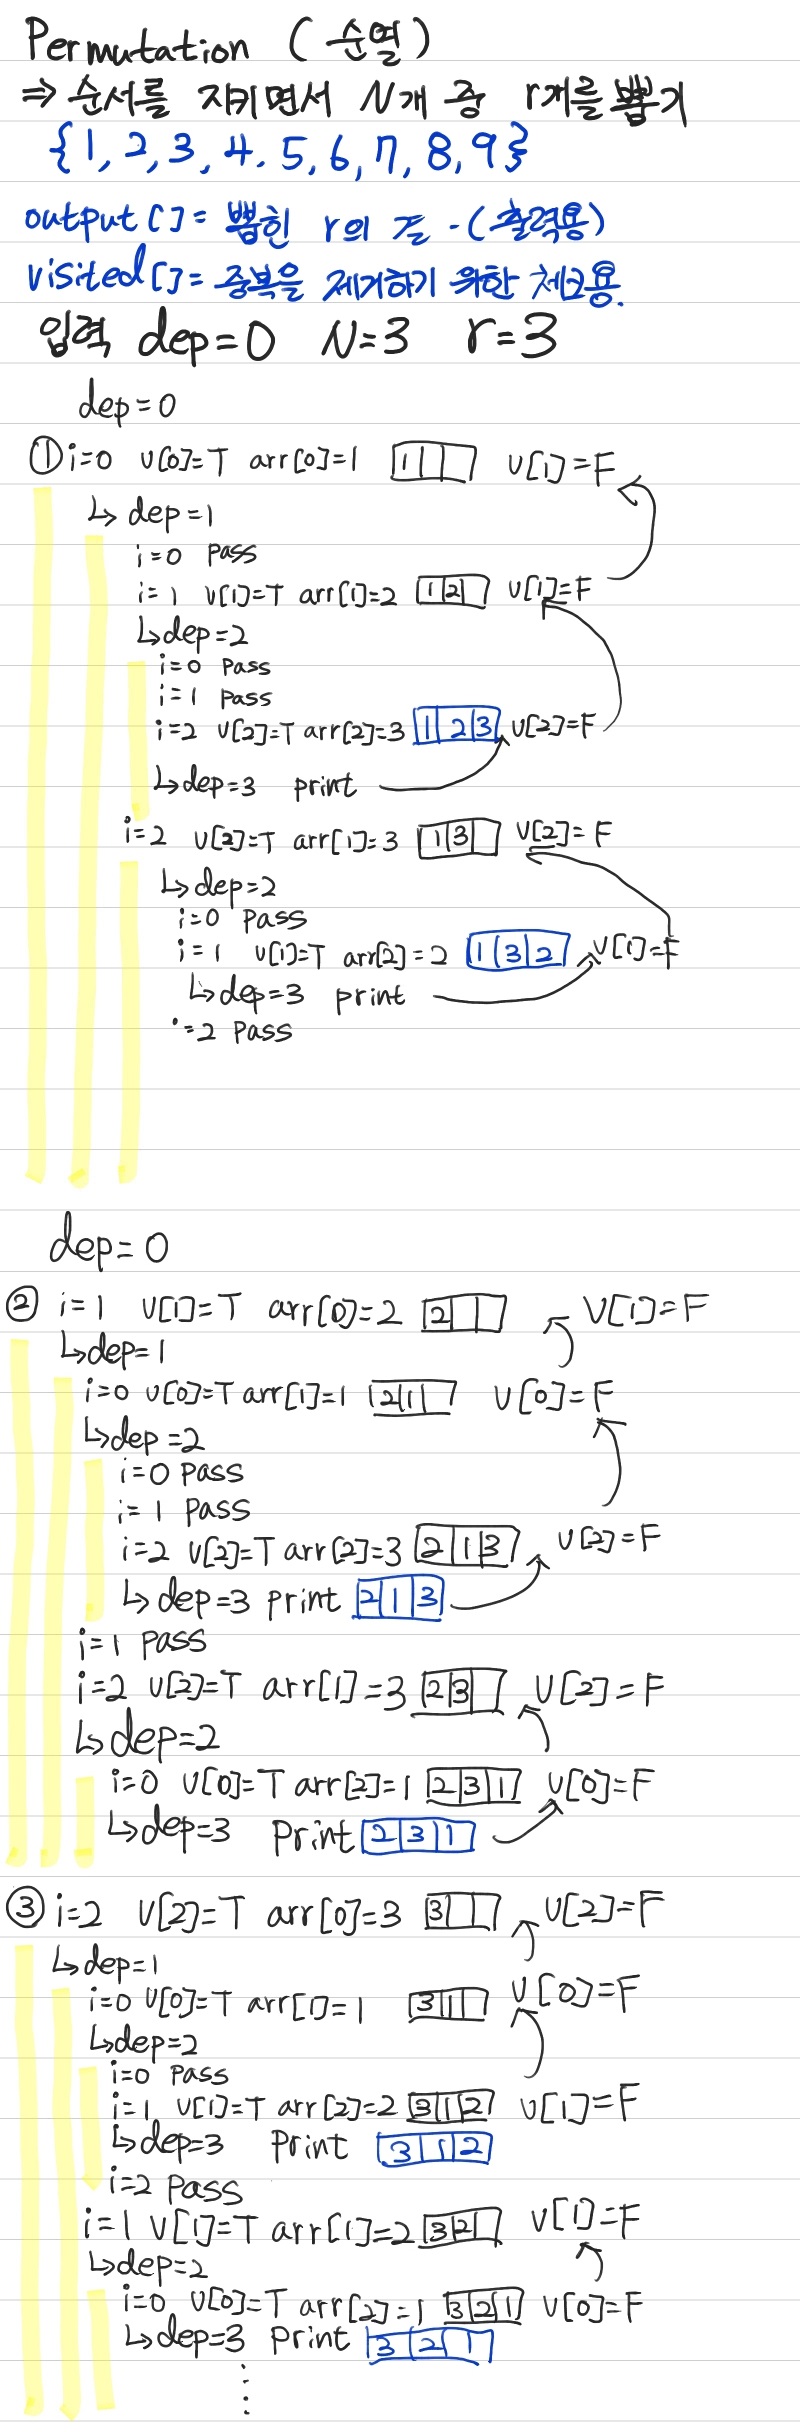 Permutation (순열)
⇒ 순서를 지키면서 N개 중 r개를 뽑기
{1, 2, 3, 4. 5, 6, 7, 8, 9}
output[] = 뽑힌 r의 결 - (출력용)
visited[] = 중복을 제거하기 위한 체크용.
입력 dep=0 N=3 r=3
dep=0
① i=0 v[0]=T arr[0]=1 1 v[1]=F
↳ dep=1
i=0 pass
i=1 v[1]=T arr[1]=2 1 2 v[1]=F
↳dep=2
i=0 pass
i=1 pass
i=2 v[2]=T arr[2]=3 1 2 3 v[2]=F
↳dep=3 print
i=2 v[2]=T arr[1]=3 1 3 v[2]=F
↳dep=2
i=0 pass
i=1 v[1]=T arr[2]=2 1 3 2 v[1]=F
↳dep=3 print
i=2 pass
dep=0
② i=1 v[1]=T arr[0]=2 2 v[1]=F
↳dep=1
i=0 v[0]=T arr[1]=1 2 1 v[0]=F
↳dep=2
i=0 pass
i=1 pass
i=2 v[2]=T arr[2]=3 2 1 3 v[2]=F
↳dep=3 print 2 1 3
i=1 pass
i=2 v[2]=T arr[1]=3 2 3 v[2]=F
↳dep=2
i=0 v[0]=T arr[2]=1 2 3 1 v[0]=F
↳dep=3 Print 2 3 1
③ i=2 v[2]=T arr[0]=3 3 v[2]=F
↳dep=1
i=0 v[0]=T arr[1]=1 3 1 v[0]=F
↳dep=2
i=0 pass
i=1 v[1]=T arr[2]=2 3 1 2 v[1]=F
↳dep=3 Print 3 1 2
i=2 pass
i=1 v[1]=T arr[1]=2 3 2 v[1]=F
↳dep=2
i=0 v[0]=T arr[2]=1 3 2 1 v[0]=F
↳dep=3 Print 3 2 1